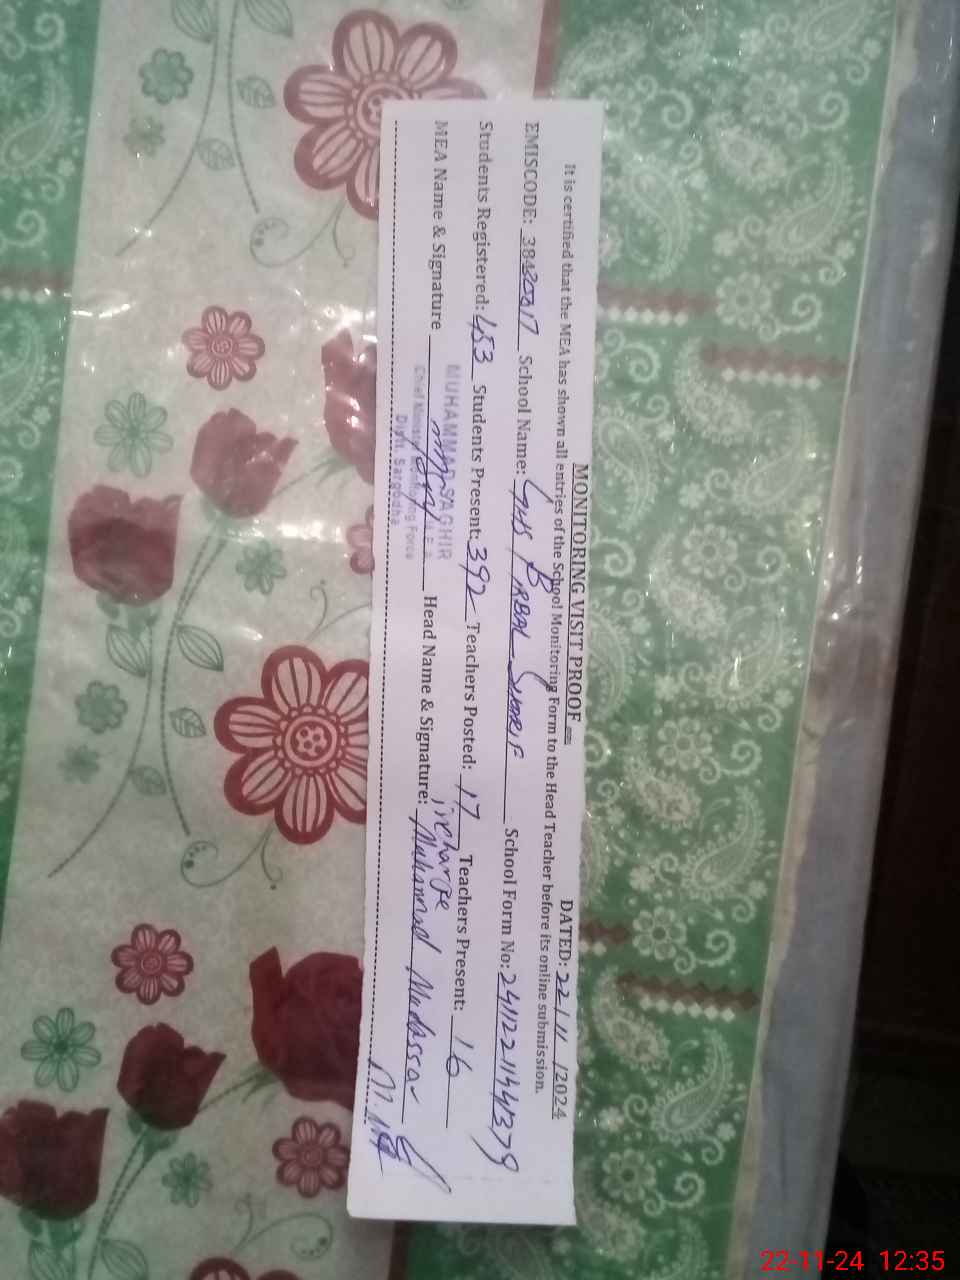 MONITORING VISIT PROOF
DATED: 22/11/2024
It is certified that the MEA has shown all entries of the School Monitoring Form to the Head Teacher before its online submission.
EMISCODE: 38420017 School Name: GHS BIRBAL SHARIF School Form No:
Students Registered: 453 Students Present: 392 Teachers Posted: 17 Teachers Present: 16
MEA Name & Signature Head Name & Signature: Muhammad Mudassar
incharge
MUHAMMAD SAGHIR
M.E.A
Chief Minister Monitoring Force
Distt. Sargodha
22-11-24 12:35